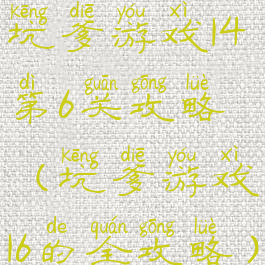 kēng diē yóu xì
坑爹游戏14
dì guān gōng luè
第6关攻略
kēng diē yóu xì
(坑爹游戏
de quán gōng luè
16的全攻略)